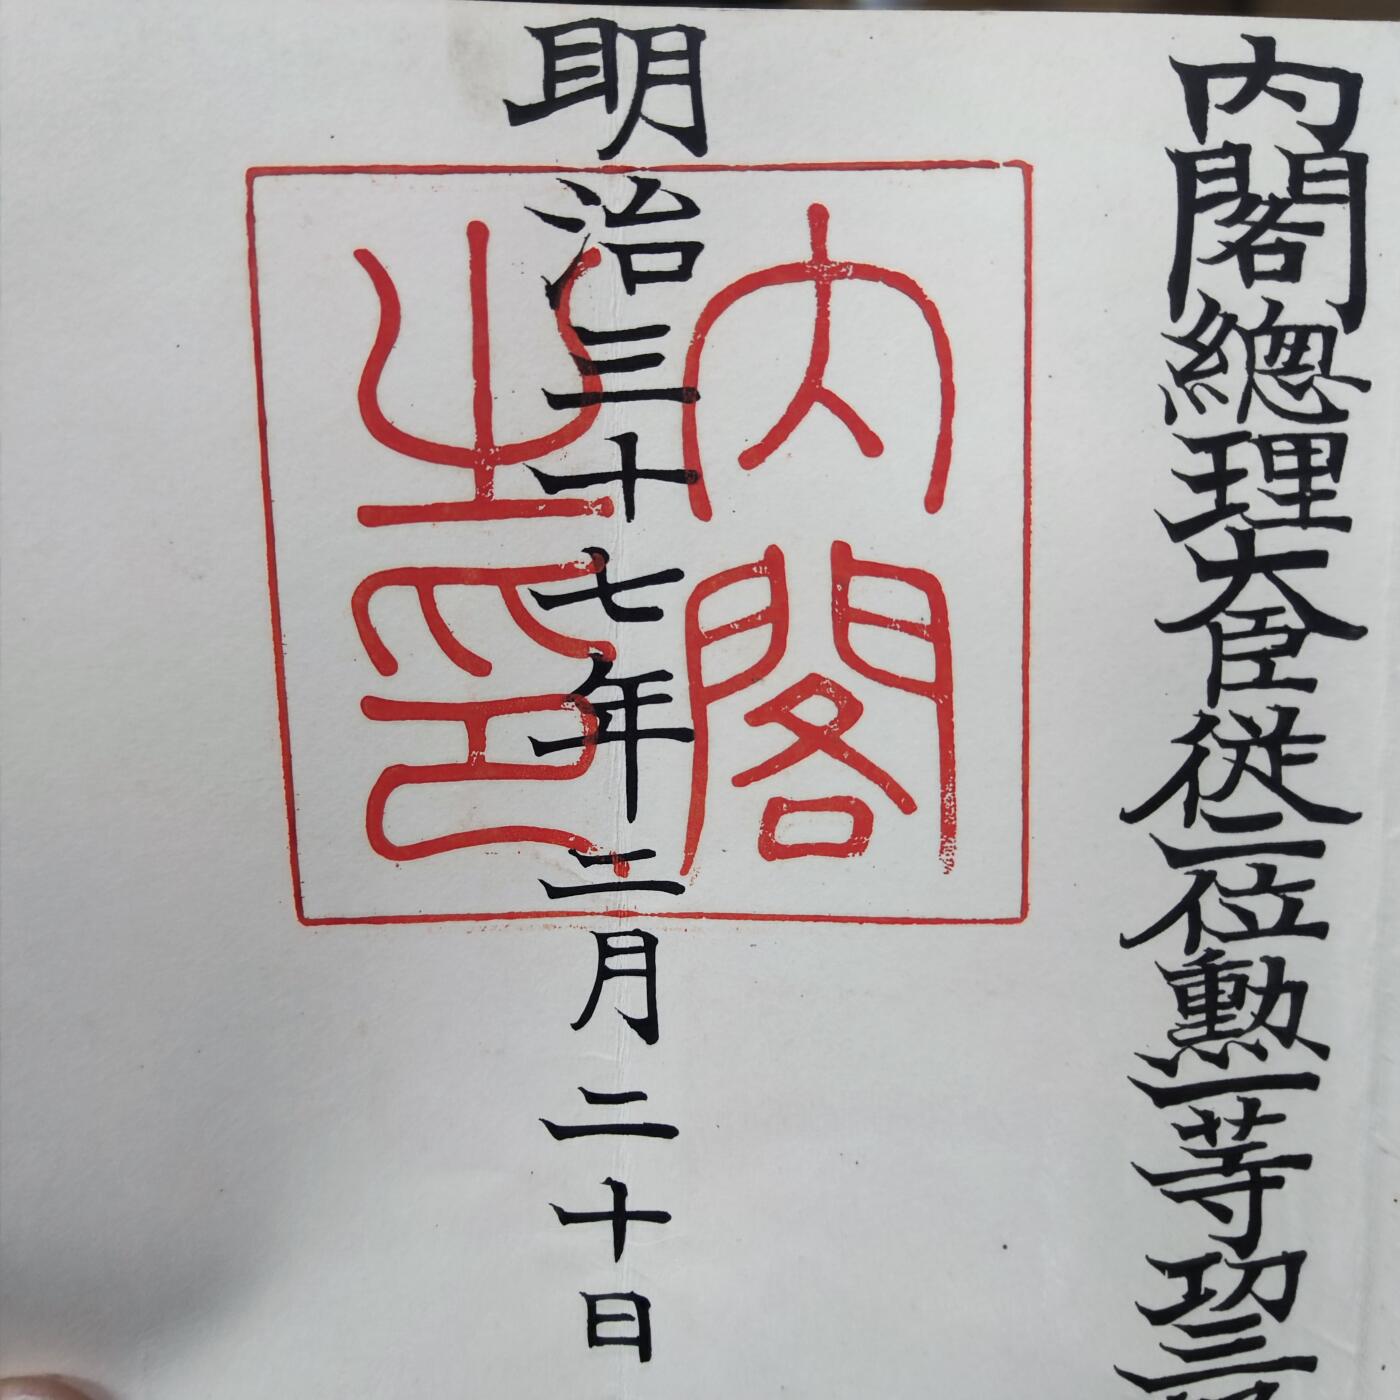 内閣總理大臣従二位勲一等功三
明治三十七年二月二十日
内閣
之印